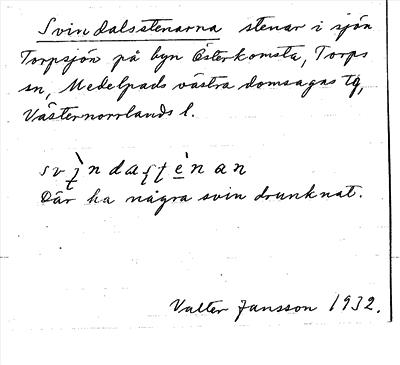 Svindalsstenarna stenar i sjön
Torpsjön på byn Österkomsta, Torps
sn, Medelpads västra domsagas tg,
Västernorrlands l.
Där ha några svin drunknat.
Valter Jansson 1932.